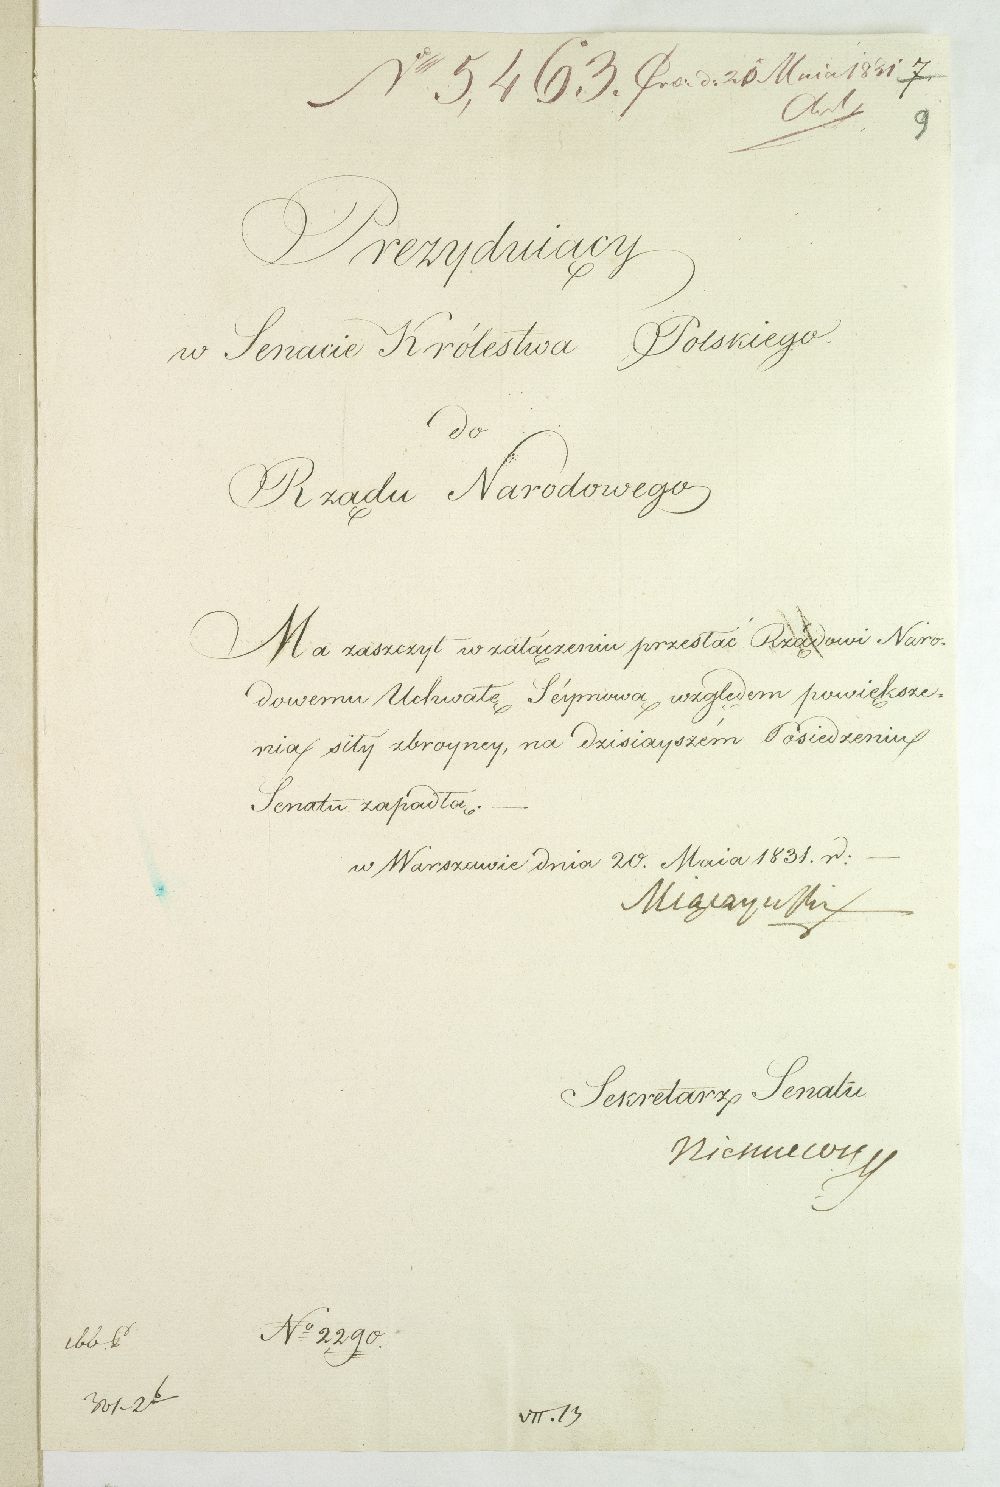 No 5,463. d. 20 Maia 1831
7
9
Prezyduiący
w Senacie Królestwa Polskiego.
do
Rządu Narodowego
Ma zaszczyt w załączeniu przesłać Rządowi Naro-
dowemu Uchwałę Séymową, względem powiększe-
nia siły zbroyney, na dzisiayszém Posiedzeniu
Senatu zapadłą. —
w Warszawie dnia 20. Maia 1831. r: —
Miączyński
Sekretarz Senatu
Niemcewicz
No 2290.
VII. 13